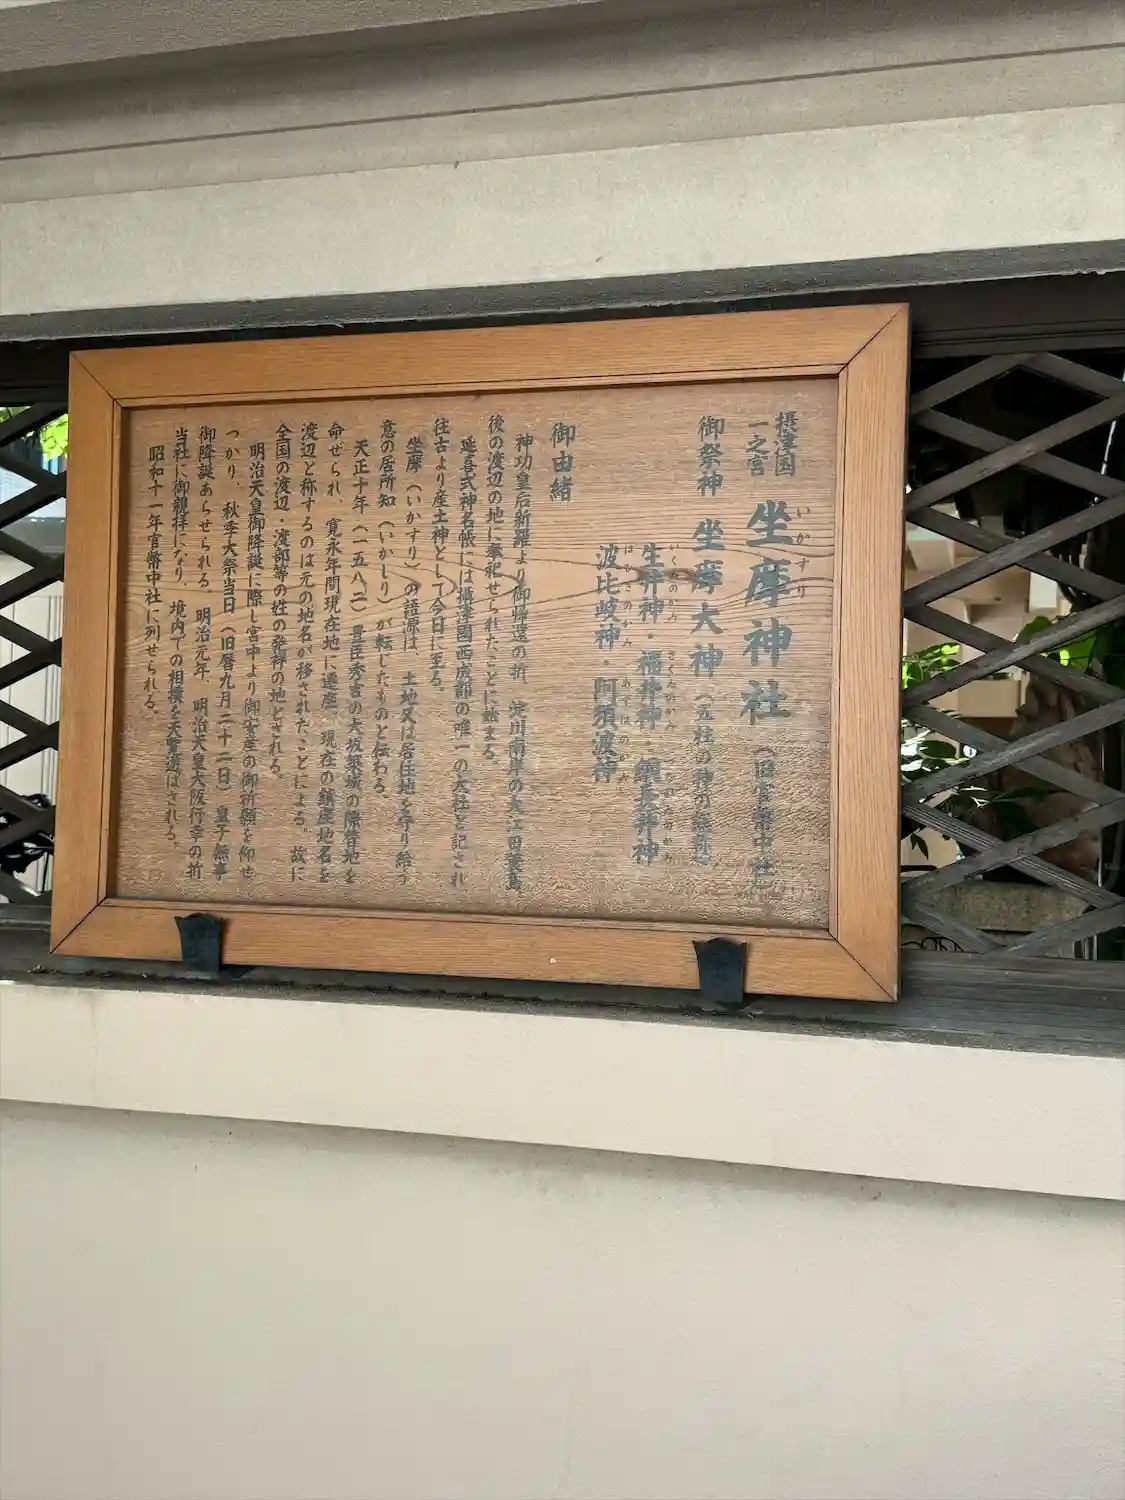 摂津国
一之宮
いかすり
坐摩神社（旧官幣中社）
御祭神 坐摩大神（五柱の神の総称）
いくゐのかみ さくゐのかみ つながゐのかみ
生井神・福井神・綱長井神
はひきのかみ あすはのかみ
波比岐神・阿須波神
御由緒
神功皇后新羅より御帰還の折、淀川南岸の大江田蓑島
後の渡辺の地に奉祀せられたことに始まる。
延喜式神名帳には攝津國西成郡の唯一の大社と記され
往古より産土神として今日に至る。
坐摩（いかすり）の語源は、土地又は居住地を守り給う
意の居所知（いかしり）が転じたものと伝わる。
天正十年（一五八二）豊臣秀吉の大坂築城の際替地を
命ぜられ、寛永年間現在地に遷座、現在の鎮座地名を
渡辺と称するのは元の地名が移されたことによる。故に
全国の渡辺・渡部等の姓の発祥の地とされる。
明治天皇御降誕に際し宮中より御安産の御祈願を仰せ
つかり、秋季大祭当日（旧暦九月二十二日）皇子無事
御降誕あらせられる。明治元年、明治天皇大阪行幸の折
当社に御親拝になり、境内での相撲を天覧遊ばされる。
昭和十一年官幣中社に列せられる。